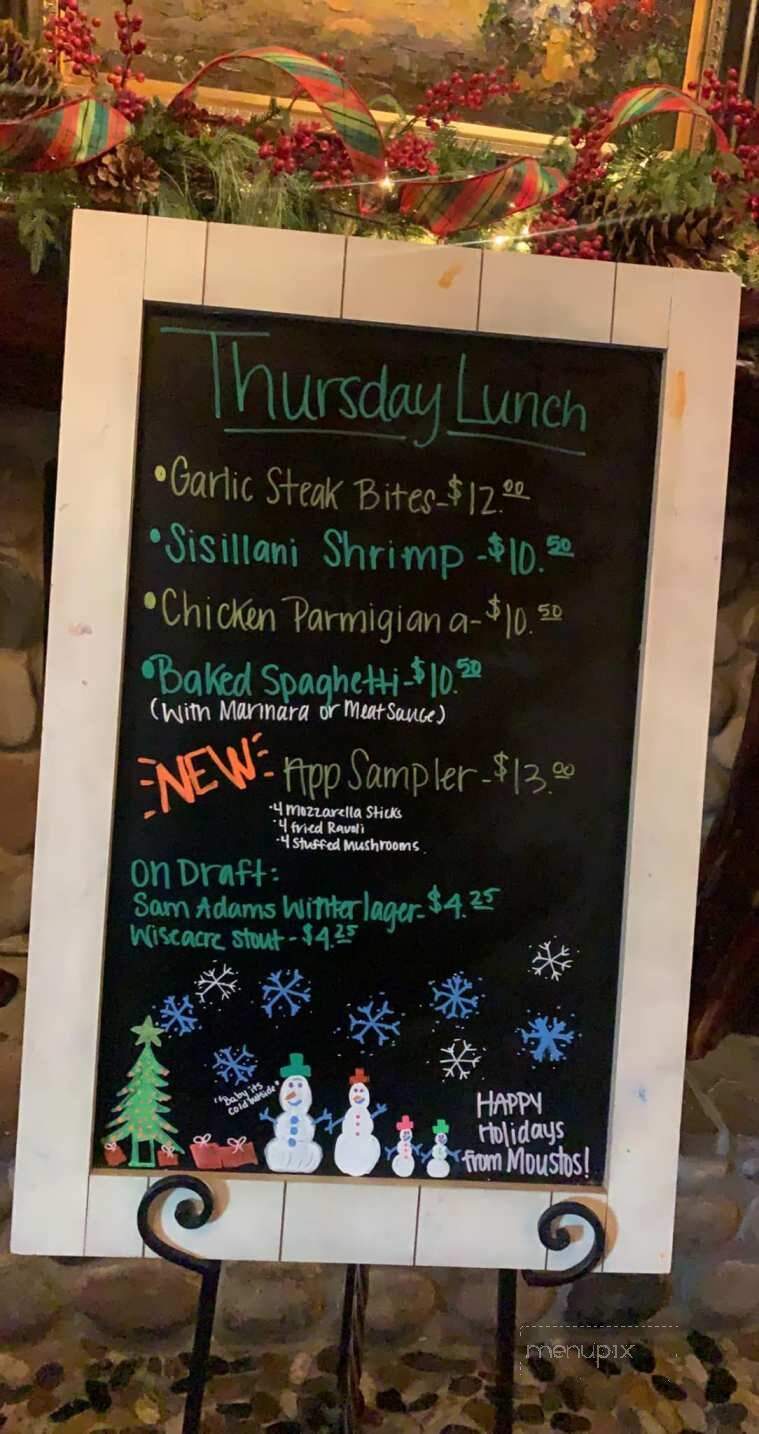 Thursday Lunch
•Garlic Steak Bites-$12.00
•Sisillani Shrimp -$10.50
•Chicken Parmigiana-$10.50
•Baked Spaghetti-$10.50
(With Marinara or Meat Sauce)
NEW App Sampler-$13.00
·4 Mozzarella Sticks
·4 fried Ravoli
·4 Stuffed Mushrooms
On Draft:
Sam Adams Winter lager-$4.25
Wiseacre stout-$4.25
"Baby its
cold outside"
HAPPY
Holidays
from Moustos!
menupix